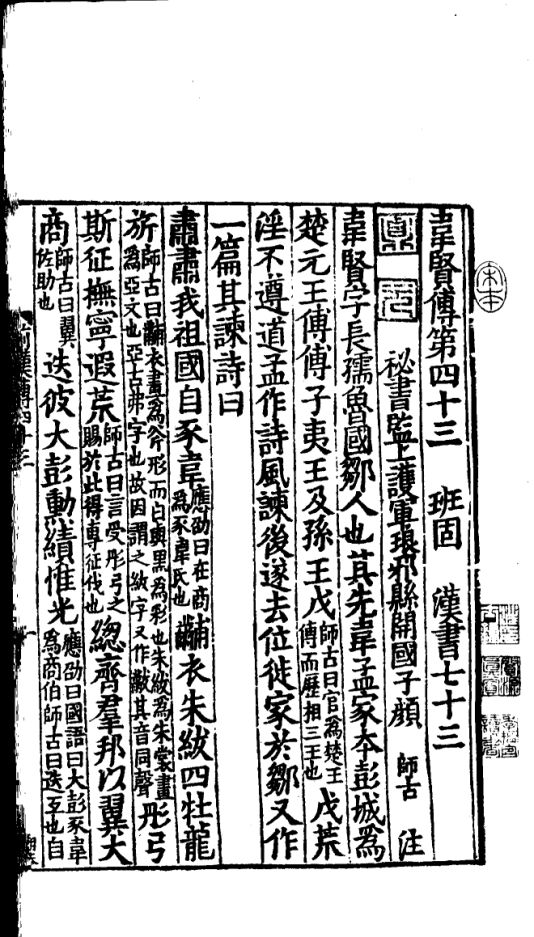 韋賢傳第四十三　班固　漢書七十三
秘書監上護軍琅邪縣開國子顔　師古　注
韋賢字長孺魯國鄒人也其先韋孟家本彭城爲
楚元王傅傅子夷王及孫王戊師古曰官爲楚王傅而歷相三王也戊荒
淫不遵道孟作詩風諫後遂去位徙家於鄒又作
一篇其諫詩曰
肅肅我祖國自豕韋應劭曰在商爲豕韋氏也黼衣朱紱四牡龍
旂師古曰黼衣畫爲斧形而白與黑爲彩也朱紱爲朱裳畫爲亞文也亞古弗字也故因謂之紱字又作黻其音同聲彤弓
斯征撫寧遐荒師古曰言受彤弓之賜於此得專征伐也緫齊羣邦以翼大
商師古曰翼佐助也迭彼大彭勳績惟光應劭曰國語曰大彭豕韋爲商伯師古曰迭互也自
前漢傳四十三